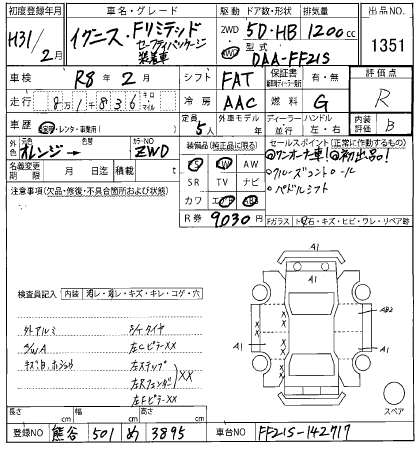 初度登録年月
車名・グレード
駆動 ドア数・形状 排気量
出品NO.
H31/2月
イグニス・Fリミテッド
セーフティパッケージ
装着車
2WD 5D・HB 1200cc
4WD 型式
DAA-FF21S
1351
車検 R8年2月
シフト FAT
保証書 有・無
評価点
R
走行 8万1千836 キロ マイル
冷房 AAC
燃料 G
車歴 自家用・レンタ・事業用( )
定員 5人
外車モデル
年
ディーラー・並行
ハンドル 左・右
内装評価 B
外色 元色 オレンジ→ 色替
カラーNO ZWD
装備品(純正品に限る)
セールスポイント(正常に作動するもの)
名義変更期限 月 日迄 積載 t
PS PW AW
SR TV ナビ
カワ エアB ABS
@ワンオーナー車!@初出品!
・クルーズコントロール
・パドルシフト
注意事項(欠品・修復・不具合箇所および状態)
R券 9030円
Fガラス トビ石・キズ・ヒビ・ワレ・リペア跡
検査員記入 内装 汚レ・コゲ・穴
外アルミ
キズ
タイヤ
左CピラーXX
左ステップ
左Rフェンダー
XX
左FピラーXX
A1
A1
AB2
A1
XX
XX
スペア
長さ cm 幅 cm 高さ cm
登録NO 熊谷 501 め 3895
車台NO FF21S-142717